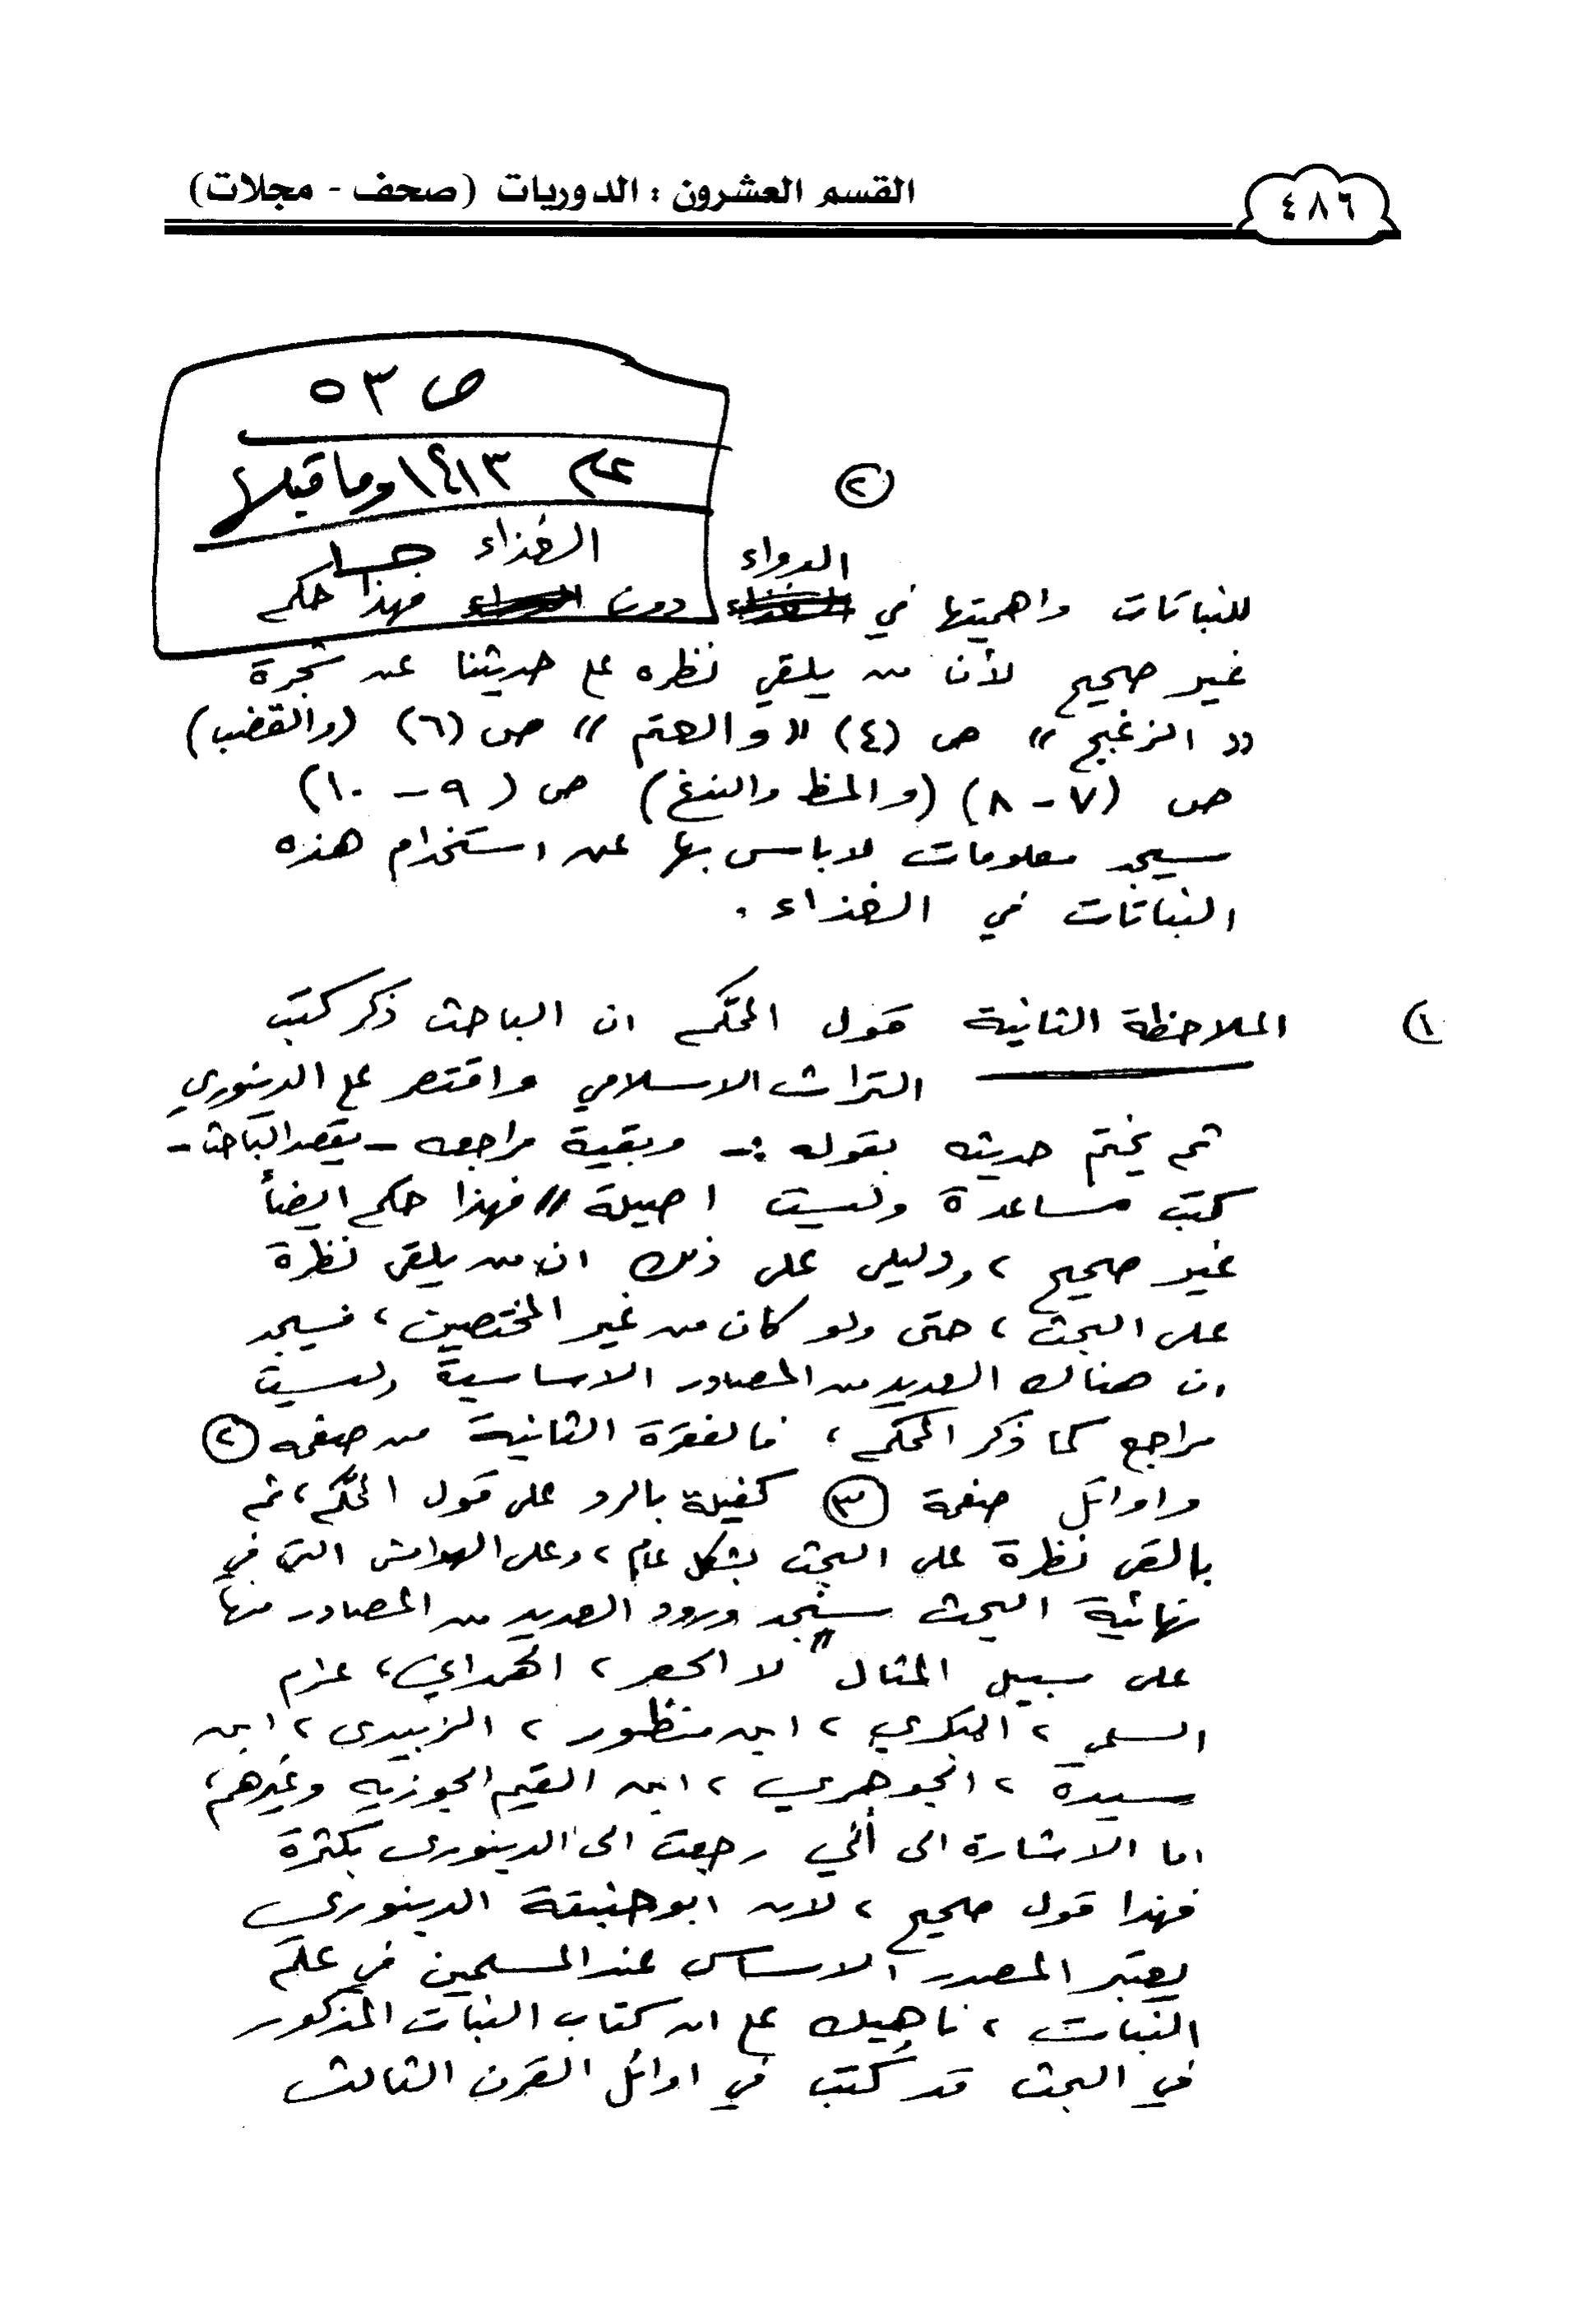 ٤٨٦
القسم العشرون : الدوريات (صحف - مجلات)
ص ٥٣
عام ١٤١٣ وما قبلها
٢
الدواء
الغذاء
للنباتات واهميتها في دون فهذا حكم
غير صحيح لأن من يلقي نظره على حديثنا عن شجرة
«الزغبج» ص (٤) «والعتم» ص (٦) (والقضب)
ص (٧ - ٨) (والمظ والنبغ) ص (٩ - ١٠)
سيجد معلومات لا باس بها عن استخدام هذه
النباتات في الغذاء .
١) الملاحظة الثانية قول المحكّم ان الباحث ذكر كتب
التراث الاسلامي واقتصر على الدينوري
ثم يختم حديثه بقوله :- وبقية مراجعه - يقصد الباحث -
كتب مساعدة وليست اصيلة" فهذا حكم ايضاً
غير صحيح ، ودليلي على ذلك ان من يلقى نظرة
على البحث ، حتى ولو كان من غير المختصين ، فسيجد
ان هناك العديد من المصادر الاساسية وليست
مراجع كما ذكر المحكم ، فالفقرة الثانية من صفحه ٢
واوائل صفحة ٣ كفيلة بالرد على قول المحكّم ، ثم
بالقى نظرة على البحث بشكل عام ، وعلى الهوامش التي في
نهائية البحث سنجد ورود العديد من المصادر منها
على سبيل المثال لا الحصر ، الهمداني ، عرام
السلمي ، البكري ، ابن منظور ، الزبيدى ، ابن
سيدة ، الجوهري ، ابن القيم الجوزيه وغيرهم ،
اما الاشارة الى أني رجعت الى الدينورى بكثرة
فهذا قول صحيح ، لان ابو حنيفة الدينوري
يعتبر المصدر الاساس عند المسلمين في علم
النبات ، ناهيك على ان كتاب النبات المذكور
في البحث قد كُتب في اوائل القرن الثالث